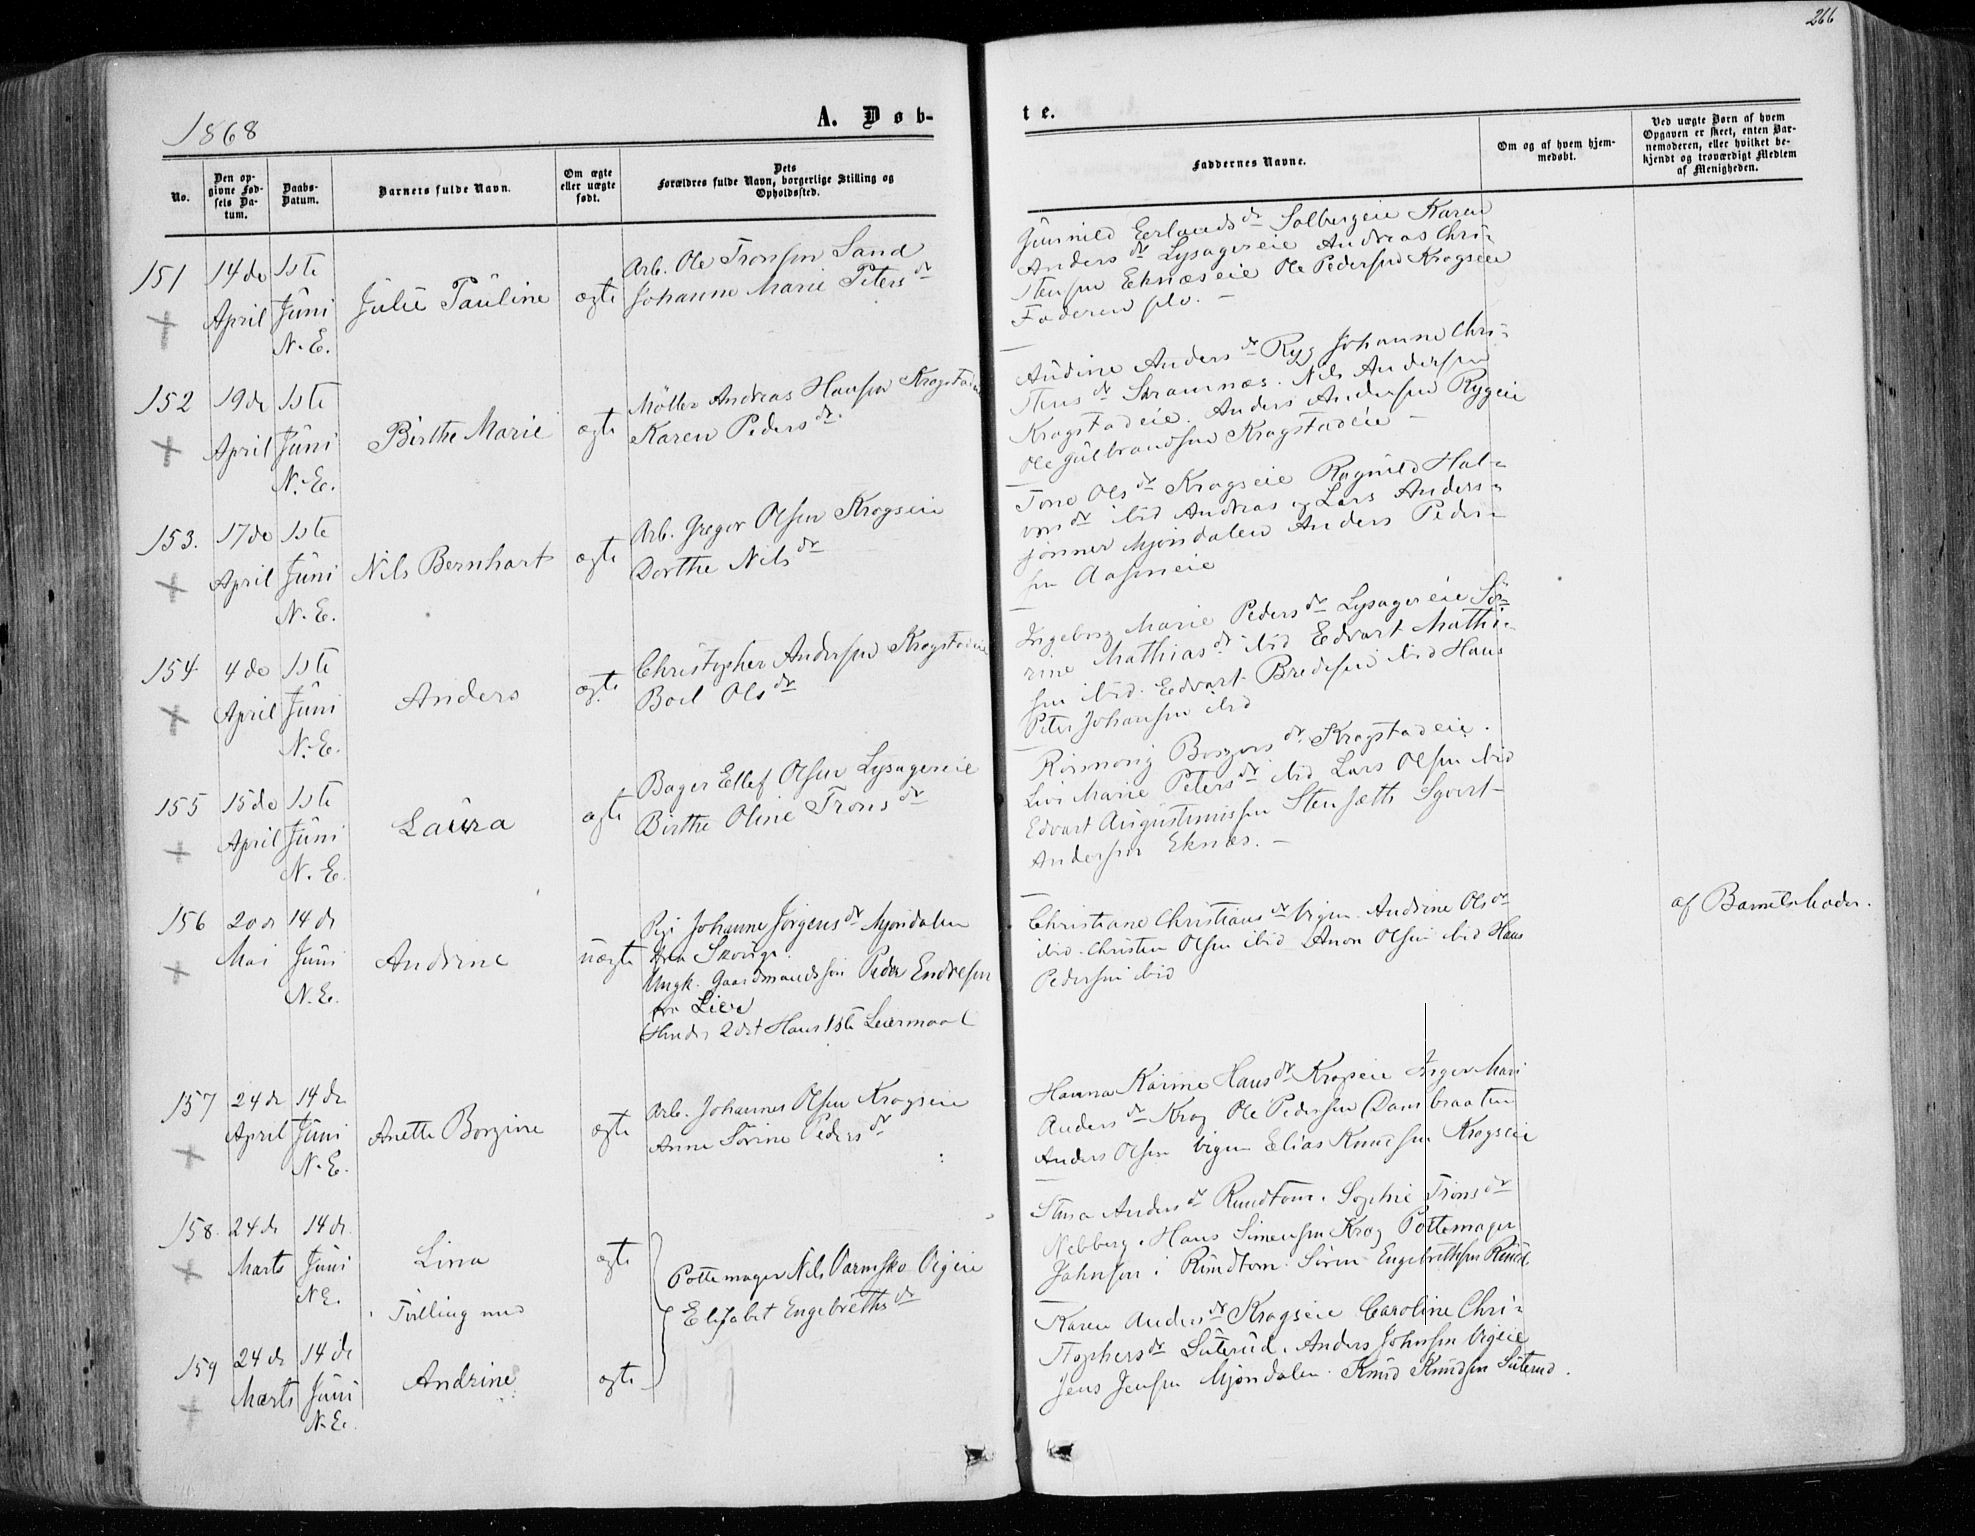 266
1868
A. Døb-
te.
No.
Den op-
givne Fød-
sels Da-
tum.
Daabs-
Datum.
Barnets fulde Navn.
Om ægte
eller uægte
født.
Dets
Forældres fulde Navn, borgerlige Stilling og
Opholdssted.
Faddernes Navne.
Om og af hvem hjem-
medøbt.
Ved uægte Børn af hvem
Opgaven er skeet, enten Bar-
nemoderen, eller hvilket be-
kjendt og troværdigt Medlem
af Menigheden.
151 14de 1ste
April Juni
N. E.
Julie Pauline
ægte
Arb. Ole Tronsen Sand
Johanne Marie Petersdr
Gunnild Erlandsdr Solbergeie Karen
Andersdr Lysagereie Andreas Chri-
stensen Eknæseie Ole Pedersen Krogseie
Faderen selv. –
152 19de 1ste
April Juni
N. E.
Birthe Marie
ægte
Møller Andreas Hansen Krogstadeie
Karen Pedersdr
Audine Andersdr Ryg Johanne Chri-
stensdr Stramnæs. Nils Andersen
Krogstadeie. Anders Andersen Rygeie
Ole Gulbrandsen Krogstadeie –
153. 17de 1ste
April Juni
N. E.
Nils Bernhart
ægte
Arb. Gregor Olsen Krogseie
Dorthe Nilsdr
Tone Olsdr Krogseie Ragnild Hal-
vorsdr ibid Andreas og Lars Anders-
sønner Mjøndalen Anders Peder-
sen Aaseneie
154 4de 1ste
April Juni
N. E.
Anders
ægte
Christopher Andersen Krogstadeie
Boel Olsdr
Ingeborg Marie Pedersdr Lysagereie Sø-
rine Mathiasdr ibid Edvart Mathi-
sen ibid. Edvart Bredesen ibid Hans
Peter Johansen ibid
155 15de 1ste
April Juni
N. E.
Laura
ægte
Bager Ellef Olsen Lysagereie
Birthe Oline Tronsdr
Krogstadeie.
Livi Marie Petersdr ibid Lars Olsen ibid
Edvart Augustinussen Stensæth Syvert
Andersen Eknæs. –
156 20de 14de
Mai Juni
N. E.
Andrine
uægte
Pige Johanne Jørgensdr Mjøndalen
Ungk. Gaardmandssøn Peder Endresen
fra Lier
Hendes 2det Hans 1ste Leiermaal
Christiane Christiansdr Vigen. Andrine Olsdr
ibid. Christen Olsen ibid Anon Olsen ibid Hans
Pedersen ibid
af Barnets Moder.
157 24de 14de
April Juni
N. E.
Anette Borgine
ægte
Arb. Johannes Olsen Krogseie
Anne Sørine Pedersdr
Hanna Karine Hansdr Krogseie Inger Mari
Andersdr Krog Ole Pedersen Dansbraaten
Anders Olsen Vigen Elias Knudsen Krogseie
158. 24de 14de
Marts Juni
N. E.
Lina
Tvilling med
ægte
Pottemager Nils Varmsko Vigeie
Elisabet Engebrethsdr
Stina Andersdr Rundtom. Sophie Tronsdr
Nebberg. Hans Simensen Krog Pottemager
Johnsen i Rundtom. Søren Engebrethsen Rund.
159 24de 14de
Marts Juni
N. E.
Andrine
ægte
Karen Andersdr Krogseie Caroline Chri-
stophersdr Suterud. Anders Johnsen Vigeie
Jens Jensen Mjøndalen. Knud Knudsen Suterud.